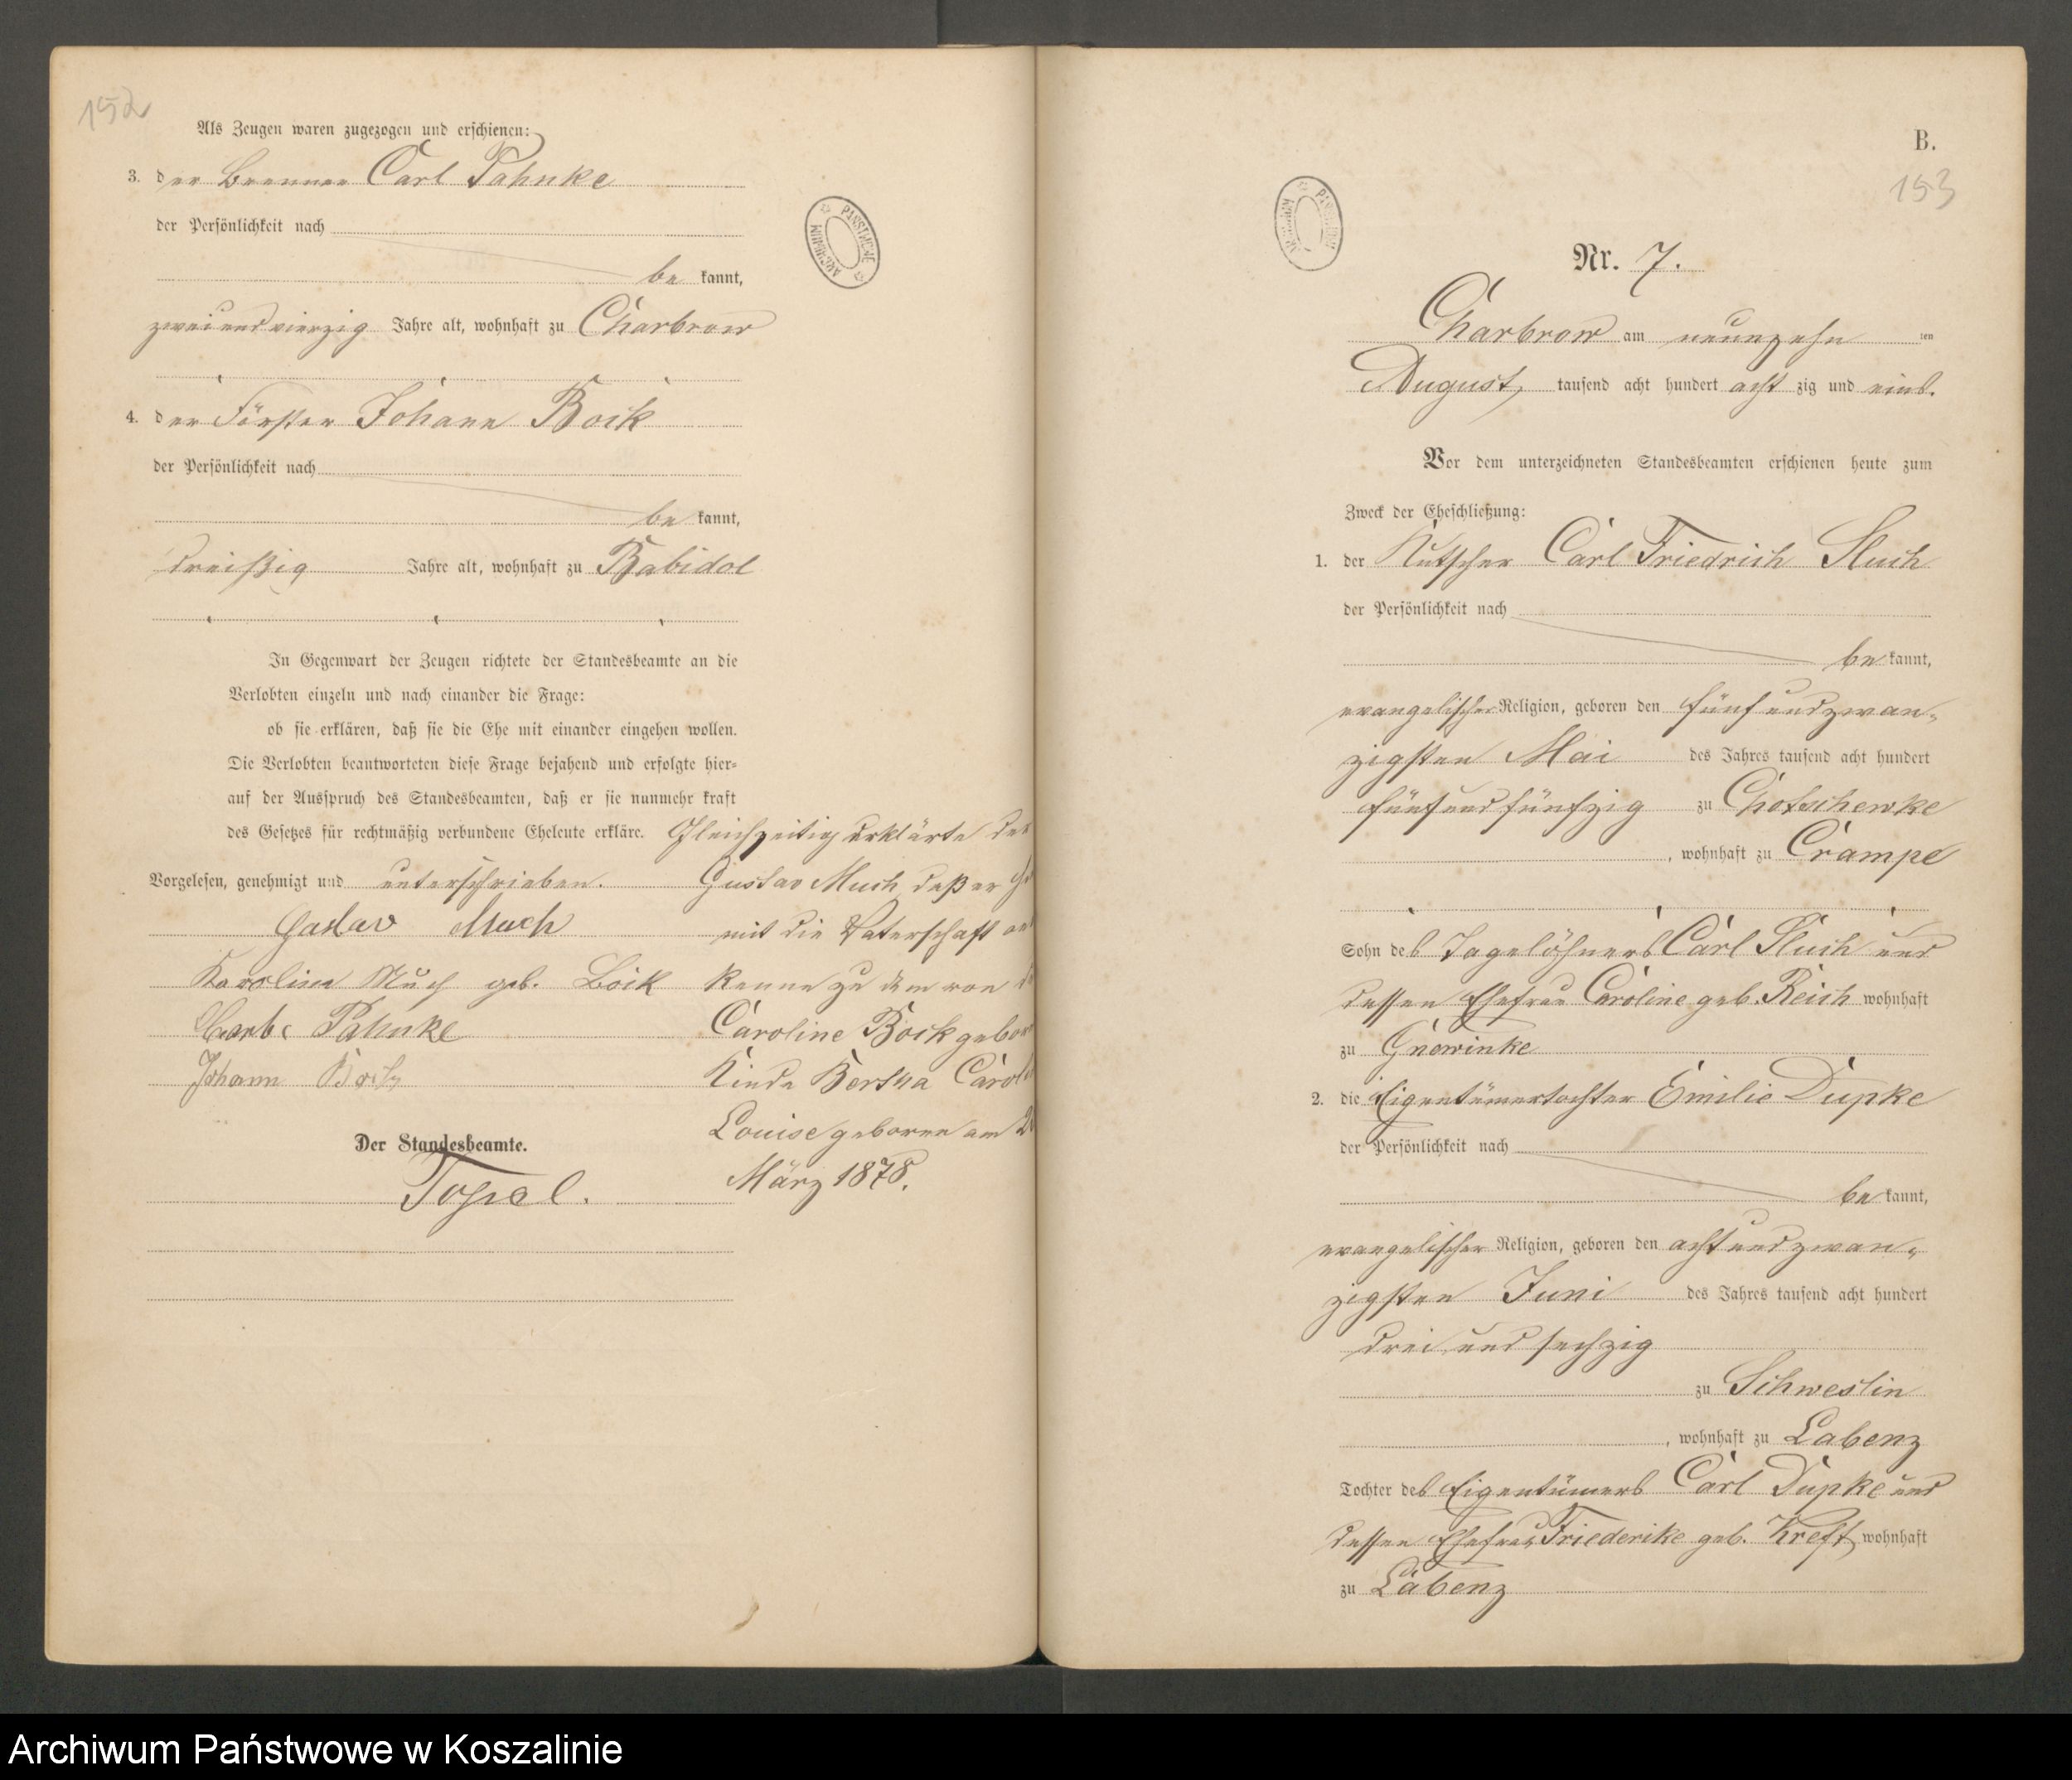 152
Als Zeugen waren zugezogen und erschienen:
3. der Brenner Carl Pahnke
der Persönlichkeit nach
be kannt,
zweiundvierzig Jahre alt, wohnhaft zu Charbrow
4. der Förster Johann Bock
der Persönlichkeit nach
be kannt,
dreißig Jahre alt, wohnhaft zu Babidol
In Gegenwart der Zeugen richtete der Standesbeamte an die
Verlobten einzeln und nach einander die Frage:
ob sie erklären, daß sie die Ehe mit einander eingehen wollen.
Die Verlobten beantworteten diese Frage bejahend und erfolgte hier-
auf der Ausspruch des Standesbeamten, daß er sie nunmehr kraft
des Gesetzes für rechtmäßig verbundene Eheleute erkläre. Gleichzeitig erklärte der
Vorgelesen, genehmigt und unterschrieben. Gustav Much, daß er
Gustav Much mit die Vaterschaft
Karoline Much geb. Bock kenne zu dem von
Pahnke Caroline Bock gebor
Johann Bock Kinde Bertha Carol
Louise geboren am 2
Der Standesbeamte.
März 1878.
ARCHIWUM PAŃSTWOWE
B.
153
ARCHIWUM PAŃSTWOWE
Nr. 7.
Charbrow am neunzehn ten
August tausend acht hundert acht zig und eins.
Vor dem unterzeichneten Standesbeamten erschienen heute zum
Zweck der Eheschließung:
1. der Kutscher Carl Friedrich Sluch
der Persönlichkeit nach
be kannt,
evangelischer Religion, geboren den fünfundzwan-
zigsten Mai des Jahres tausend acht hundert
fünfundfünfzig zu Chotschewke
, wohnhaft zu Crampe
Sohn des Tagelöhners Carl Sluch und
dessen Ehefrau Caroline geb. Reich wohnhaft
zu Gnewinke
2. die Eigentümertochter Emilie Dupke
der Persönlichkeit nach
be kannt,
evangelischer Religion, geboren den achtundzwan-
zigsten Juni des Jahres tausend acht hundert
drei und sechzig
zu Schweslin
, wohnhaft zu Labenz
Tochter des Eigentümers Carl Dupke und
dessen Ehefrau Friederike geb. Kreft wohnhaft
zu Labenz
Archiwum Państwowe w Koszalinie